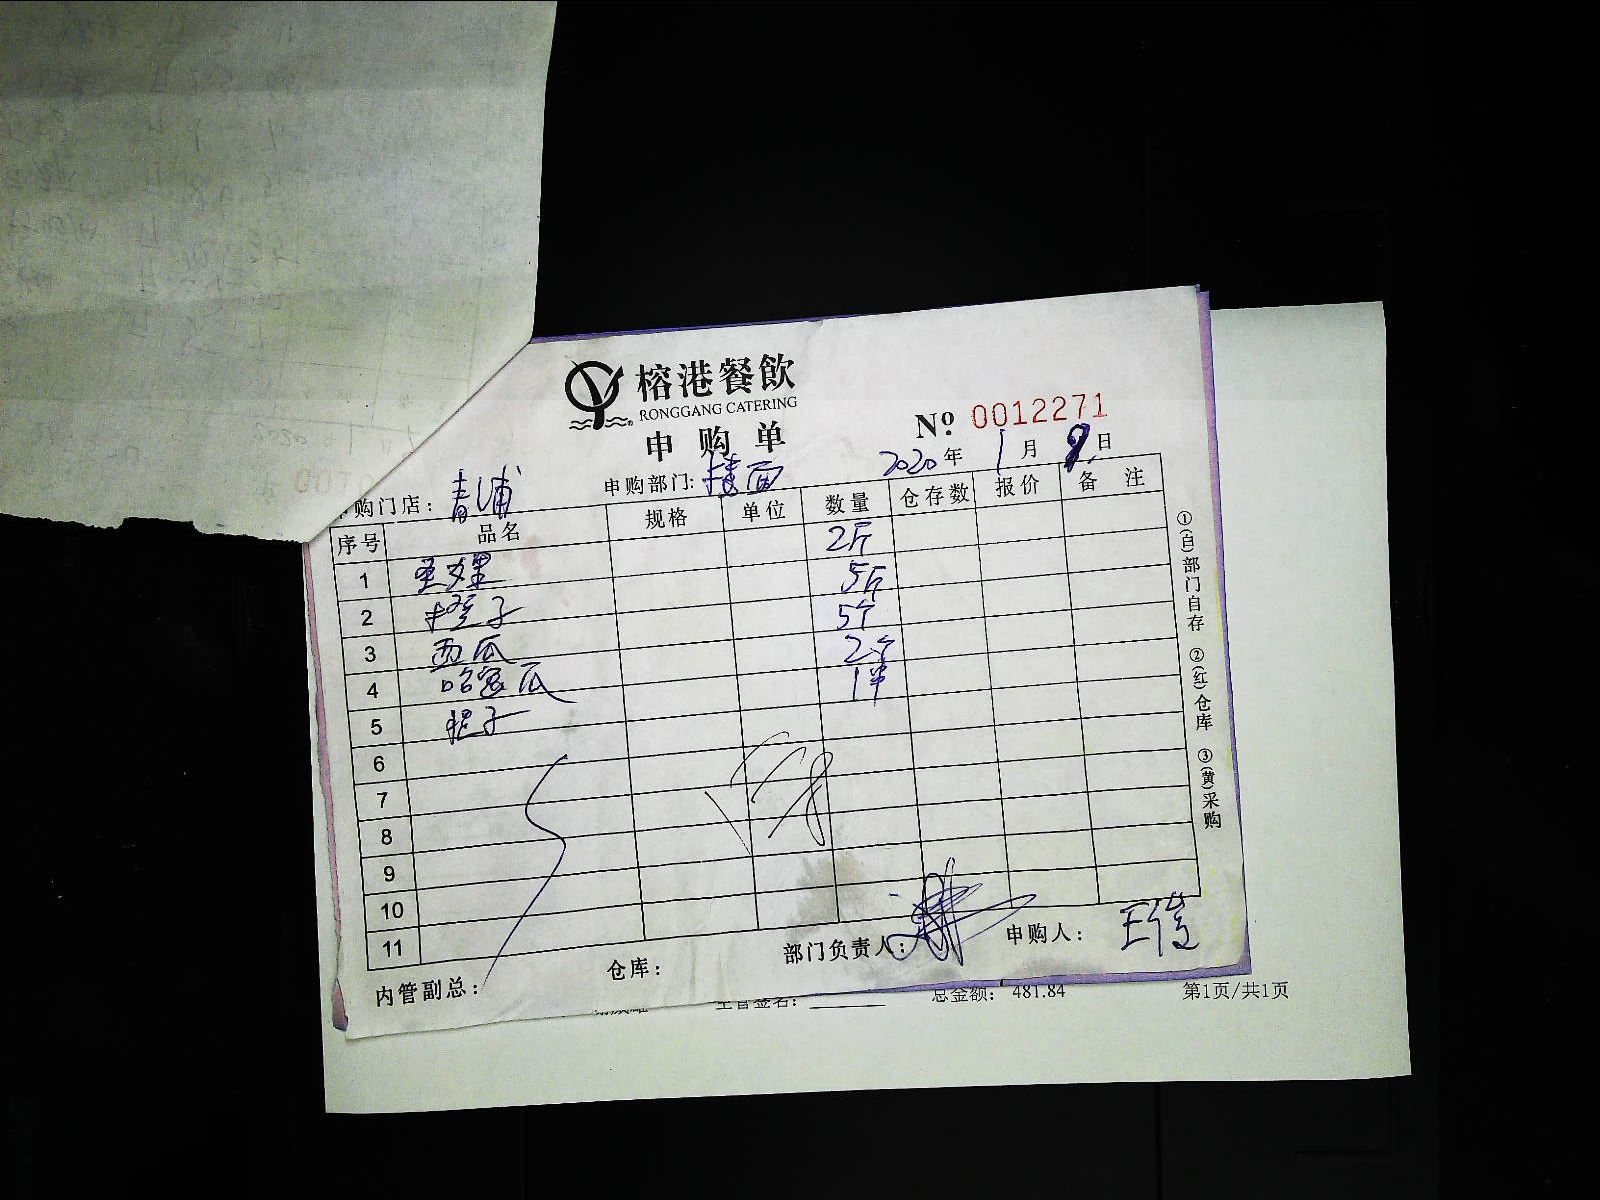 榕港餐飲
RONGGANG CATERING
申购单
Nº 0012271
2020年1月9日
购门店：青浦 申购部门：楼面
序号 品名 规格 单位 数量 仓存数 报价 备注
1 圣女果 2斤
2 橙子 5斤
3 西瓜 5个
4 哈密瓜 2个
5 提子 1件
6
7
8
9
10
11
内管副总： 仓库： 部门负责人： 申购人：王
①(白)部门自存 ②(红)仓库 ③(黄)采购
主管签名： 总金额： 481.84 第1页/共1页